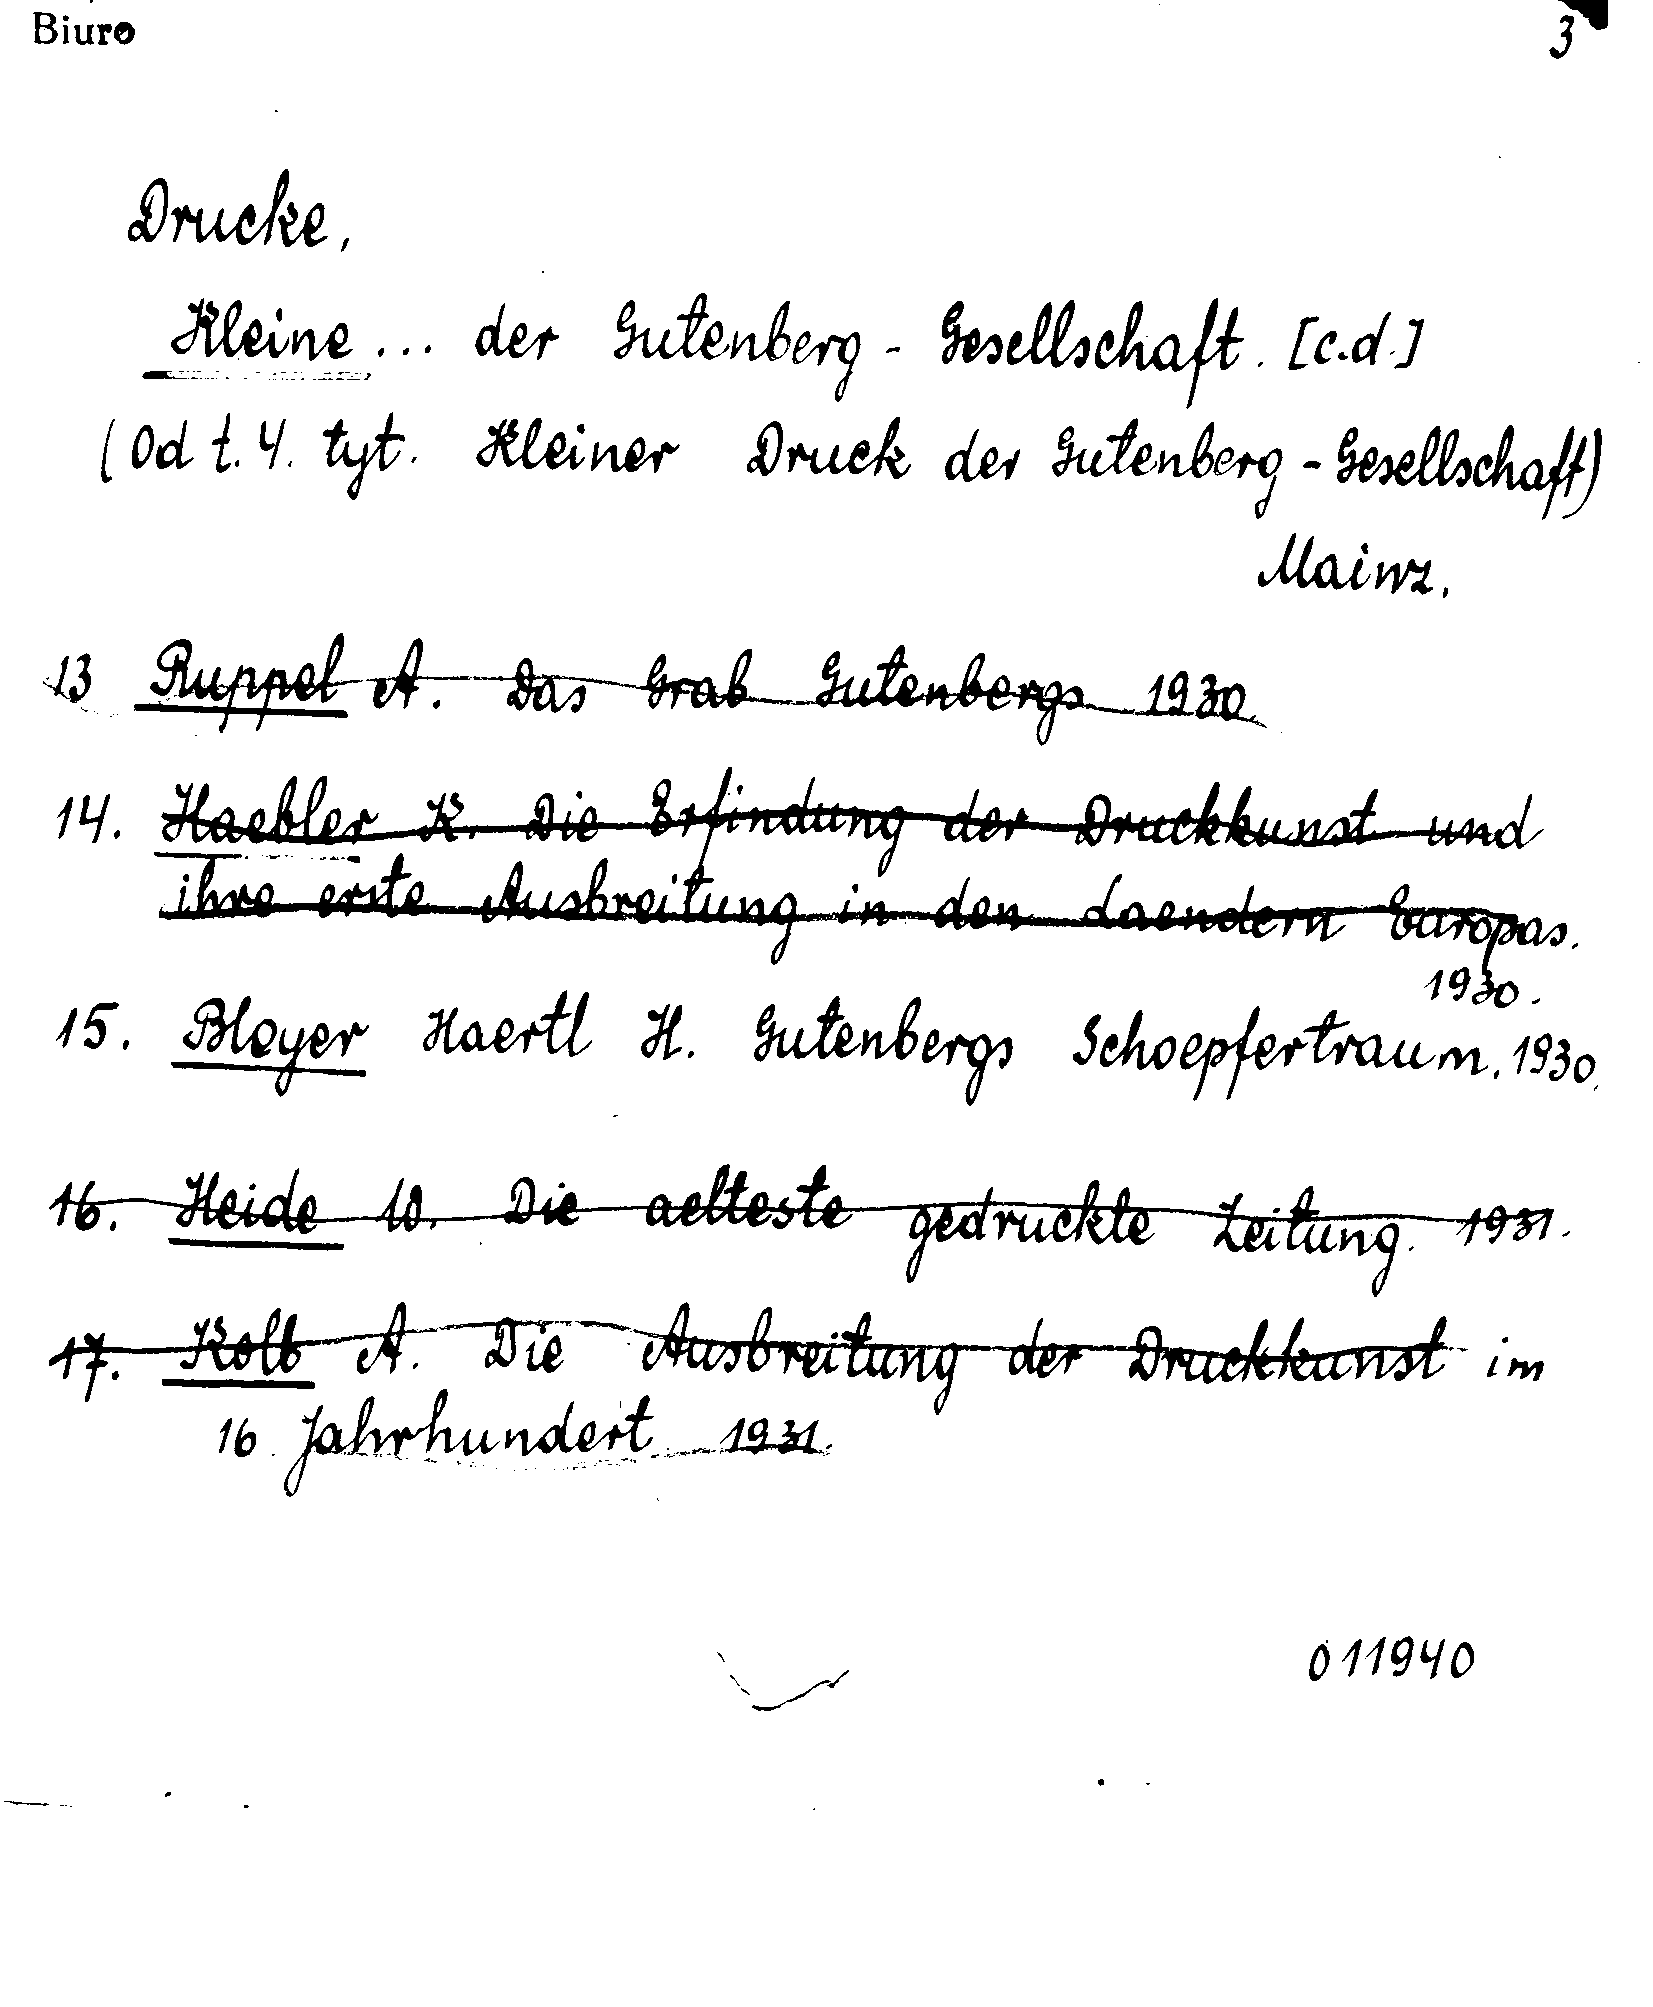 Biuro
3
Drucke,
Kleine... der Gutenberg - Gesellschaft. [c.d.]
(Od t. 4. tyt. Kleiner Druck der Gutenberg - Gesellschaft)
Mainz.
13 Ruppel A. Das Grab Gutenbergs 1930.
14. Haebler K. Die Erfindung der Druckkunst und
ihre erste Ausbreitung in den Laendern Europas.
1930.
15. Bleyer Haertl H. Gutenbergs Schoepfertraum. 1930.
16. Heide W. Die aelteste gedruckte Zeitung. 1931.
17. Kolb A. Die Ausbreitung der Druckkunst im
16. Jahrhundert 1931.
011940